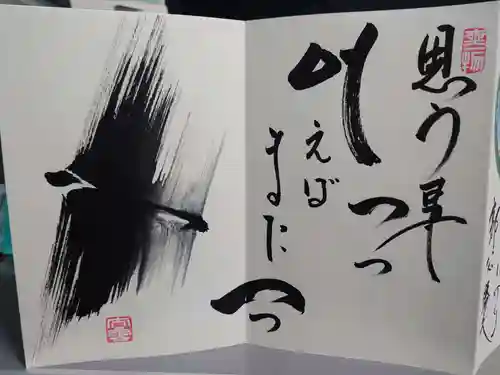 思う事
一つ
叶
えば
また
一つ